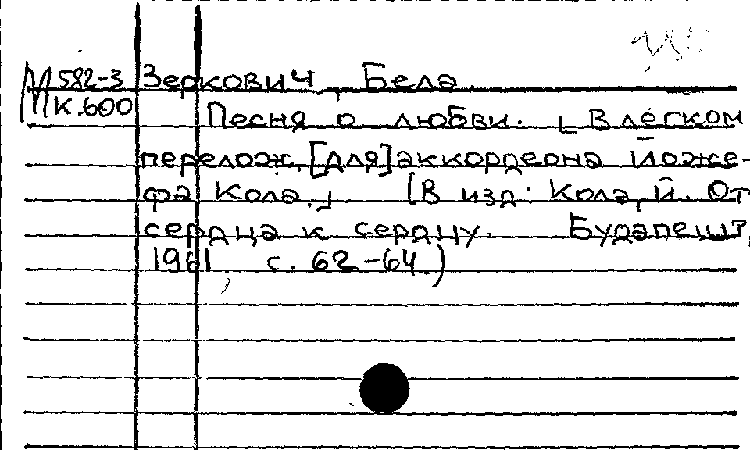 М 582-3 Зеркович, Бела.
К.600 Песня о любви. [В легком
перелож. [для] аккордеона Йоже-
фа Кола.] (В изд: Кола, Й. От
сердца к сердцу. Будапешт,
1961, с. 62-64.)